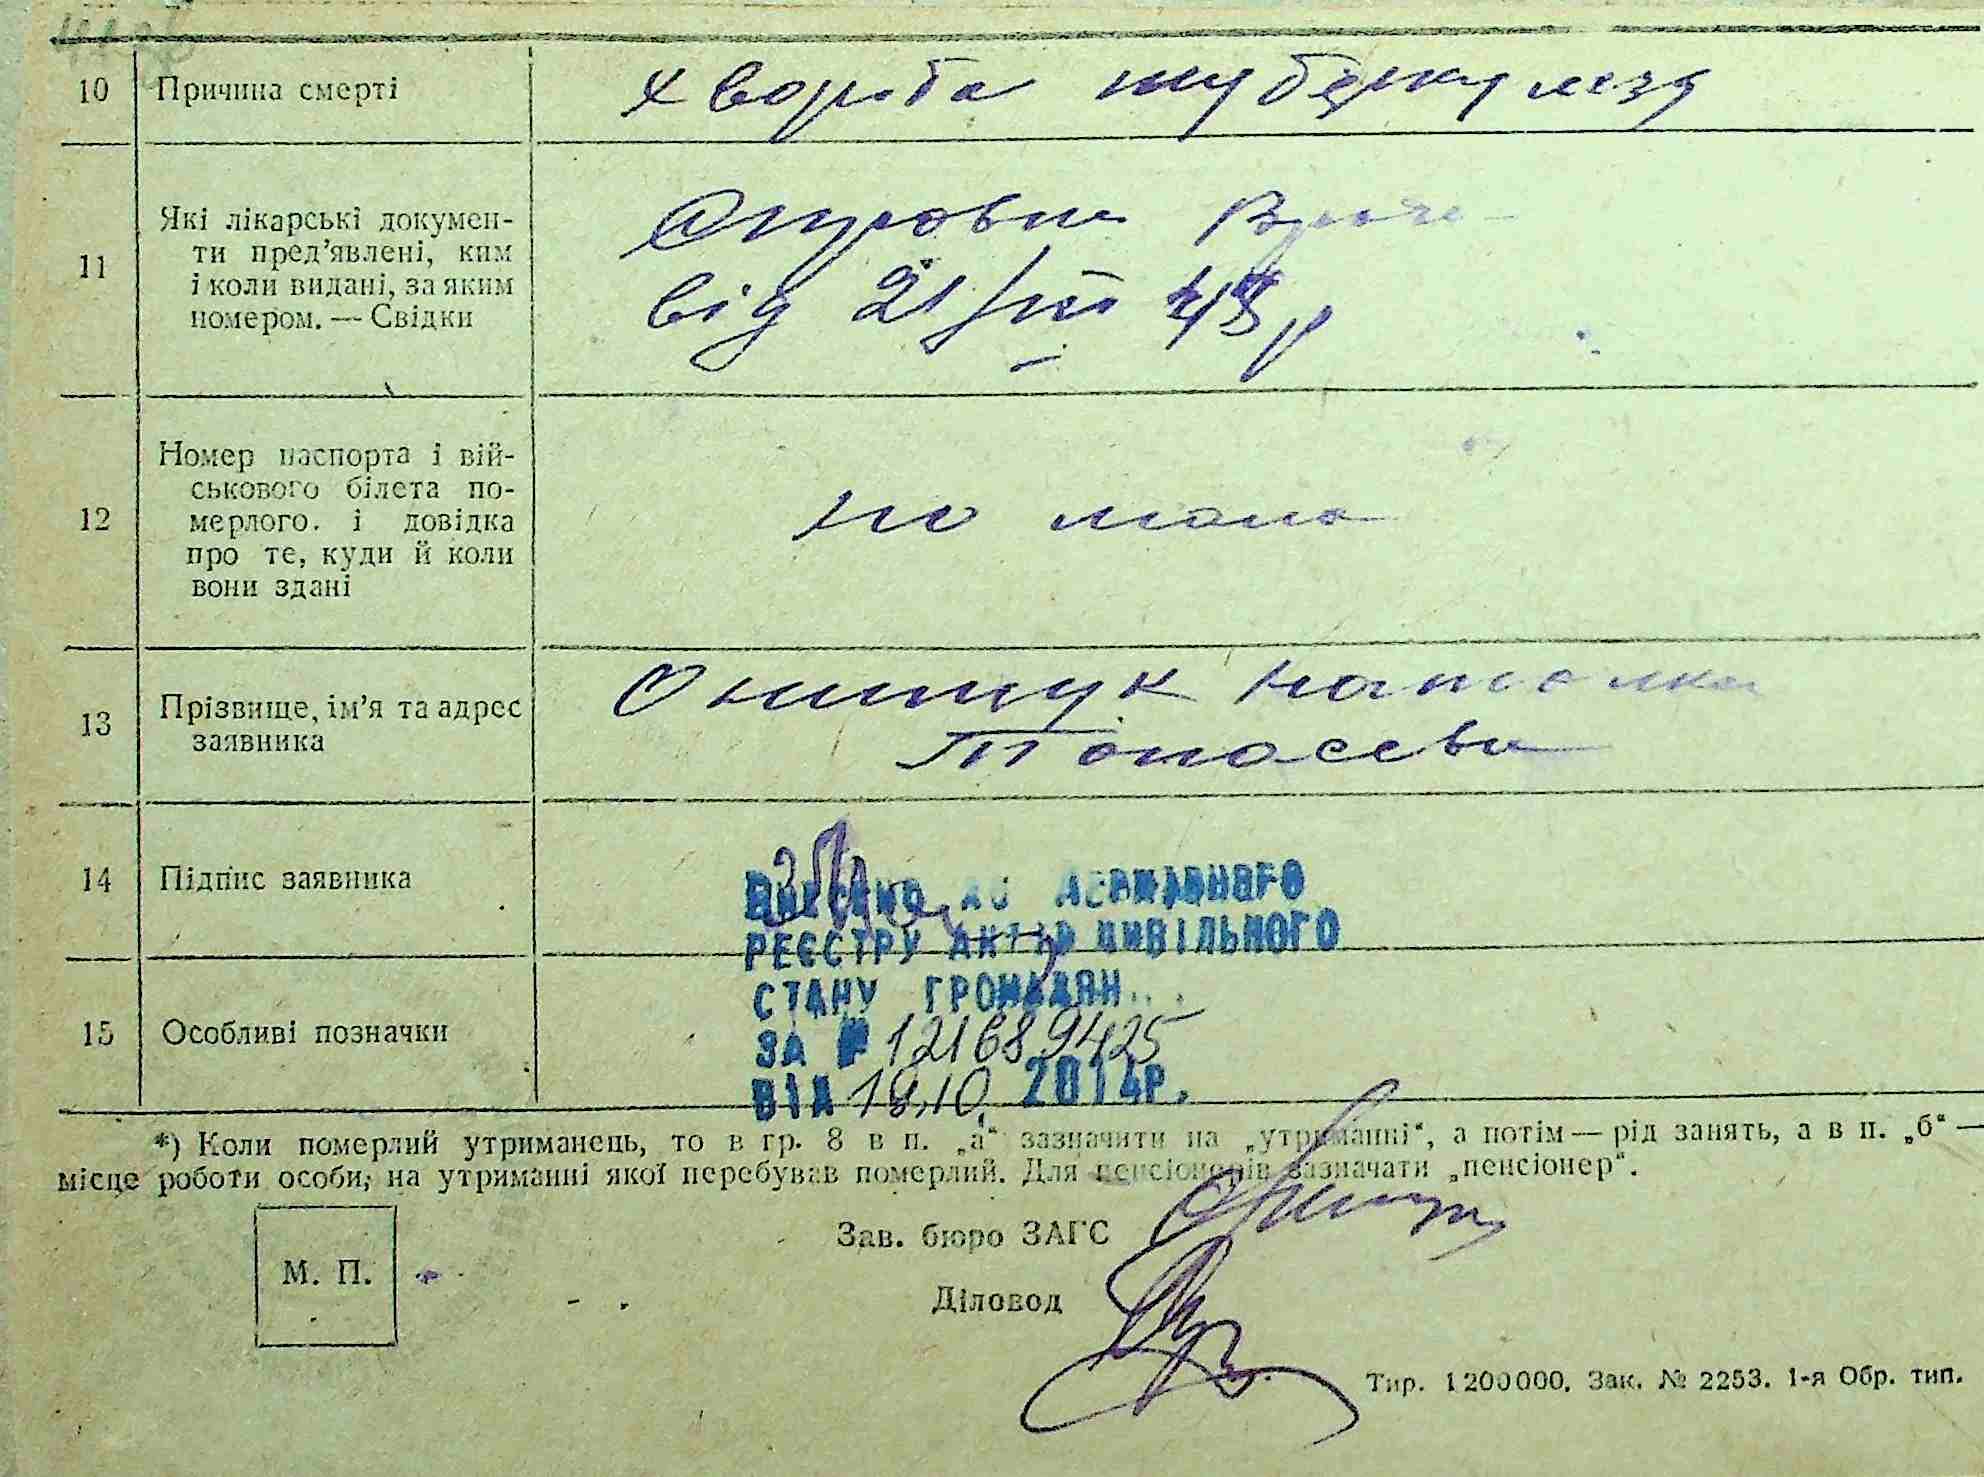 10 Причина смерті хвороба туберкулеза
11 Які лікарські докумен-
ти пред’явлені, ким
і коли видані, за яким
номером. — Свідки
від 21/III 48 р
12 Номер паспорта і вій-
ськового білета по-
мерлого. і довідка
про те, куди й коли
вони здані
но мано
13 Прізвище, ім’я та адрес
заявника
Онищук Наталка
Топосевна
14 Підпис заявника
ВНЕСЕНО ДО ДЕРЖАВНОГО
РЕЄСТРУ АКТІВ ЦИВІЛЬНОГО
СТАНУ ГРОМАДЯН...
15 Особливі позначки
ЗА № 121689425
ВІД 18.10. 2014Р.
*) Коли померлий утриманець, то в гр. 8 в п. „а“ зазначити на „утриманні“, а потім — рід занять, а в п. „б“ —
місце роботи особи, на утриманні якої перебував померлий. Для пенсіонерів зазначати „пенсіонер“.
Зав. бюро ЗАГС
М. П.
Діловод
Тир. 1200000. Зак. № 2253. 1-я Обр. тип.